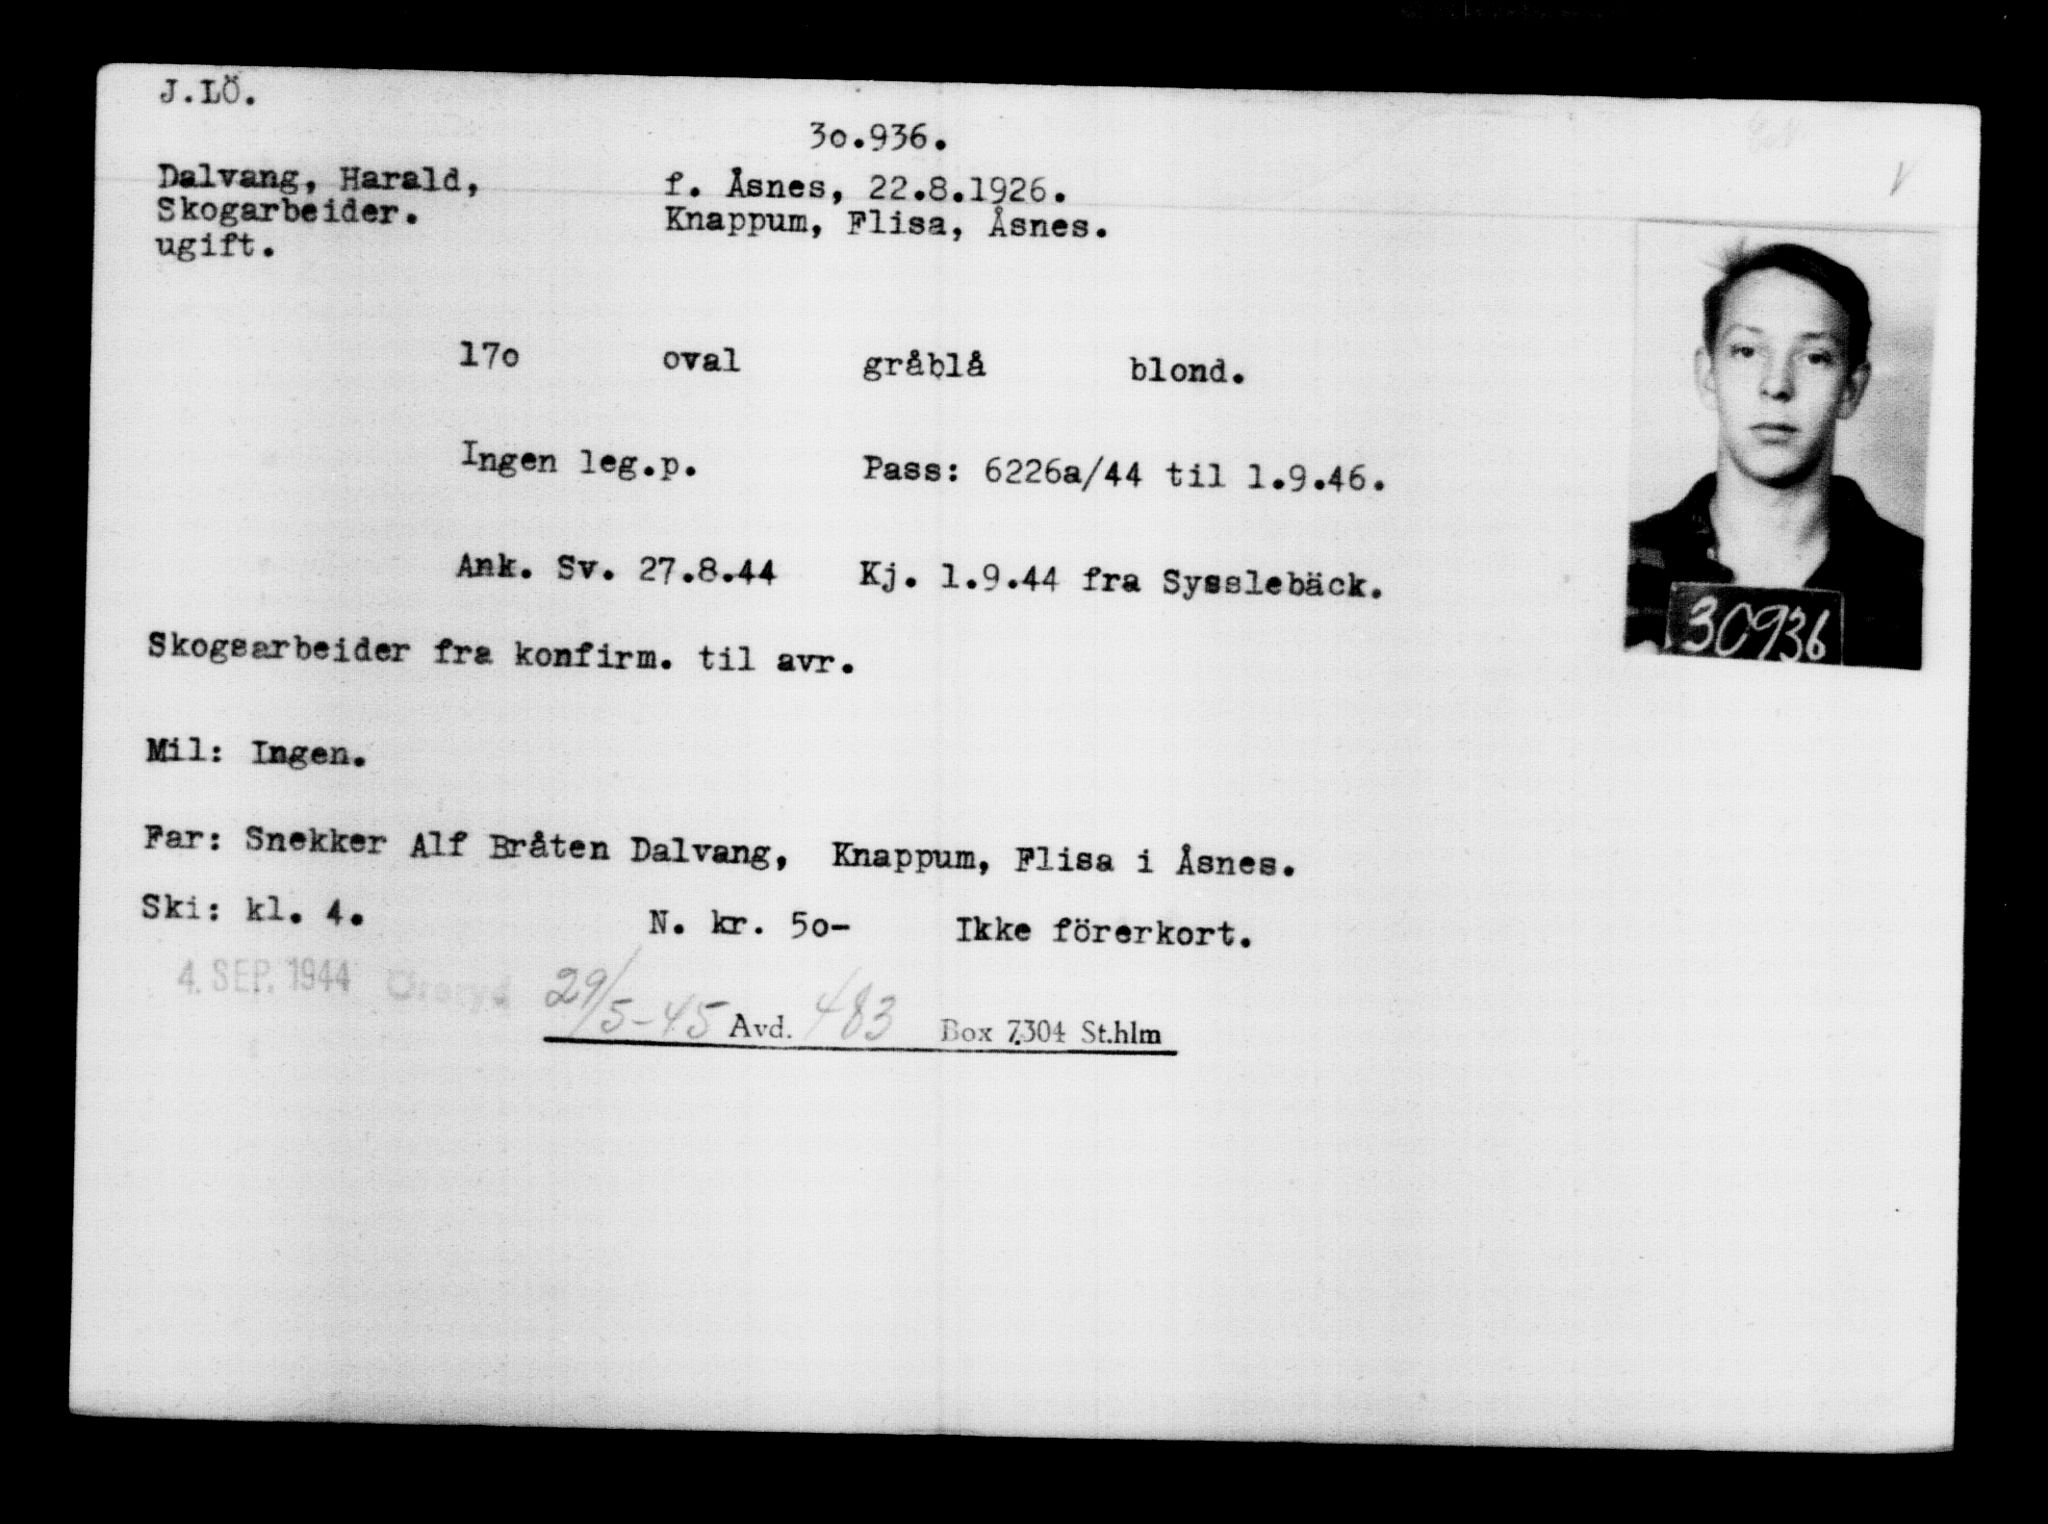 J.LÖ.
3o.936.
Dalvang, Harald, f. Åsnes, 22.8.1926.
Skogarbeider. Knappum, Flisa, Åsnes.
ugift.
17o oval gråblå blond.
Ingen leg.p. Pass: 6226a/44 til 1.9.46.
Ank. Sv. 27.8.44 Kj. 1.9.44 fra Sysslebäck.
30936
Skogsarbeider fra konfirm. til avr.
Mil: Ingen.
Far: Snekker Alf Bråten Dalvang, Knappum, Flisa i Åsnes.
Ski: kl. 4. N. kr. 5o- Ikke förerkort.
4. SEP. 1944 Öreryd
29/5-45 Avd. 483 Box 7304 St.hlm